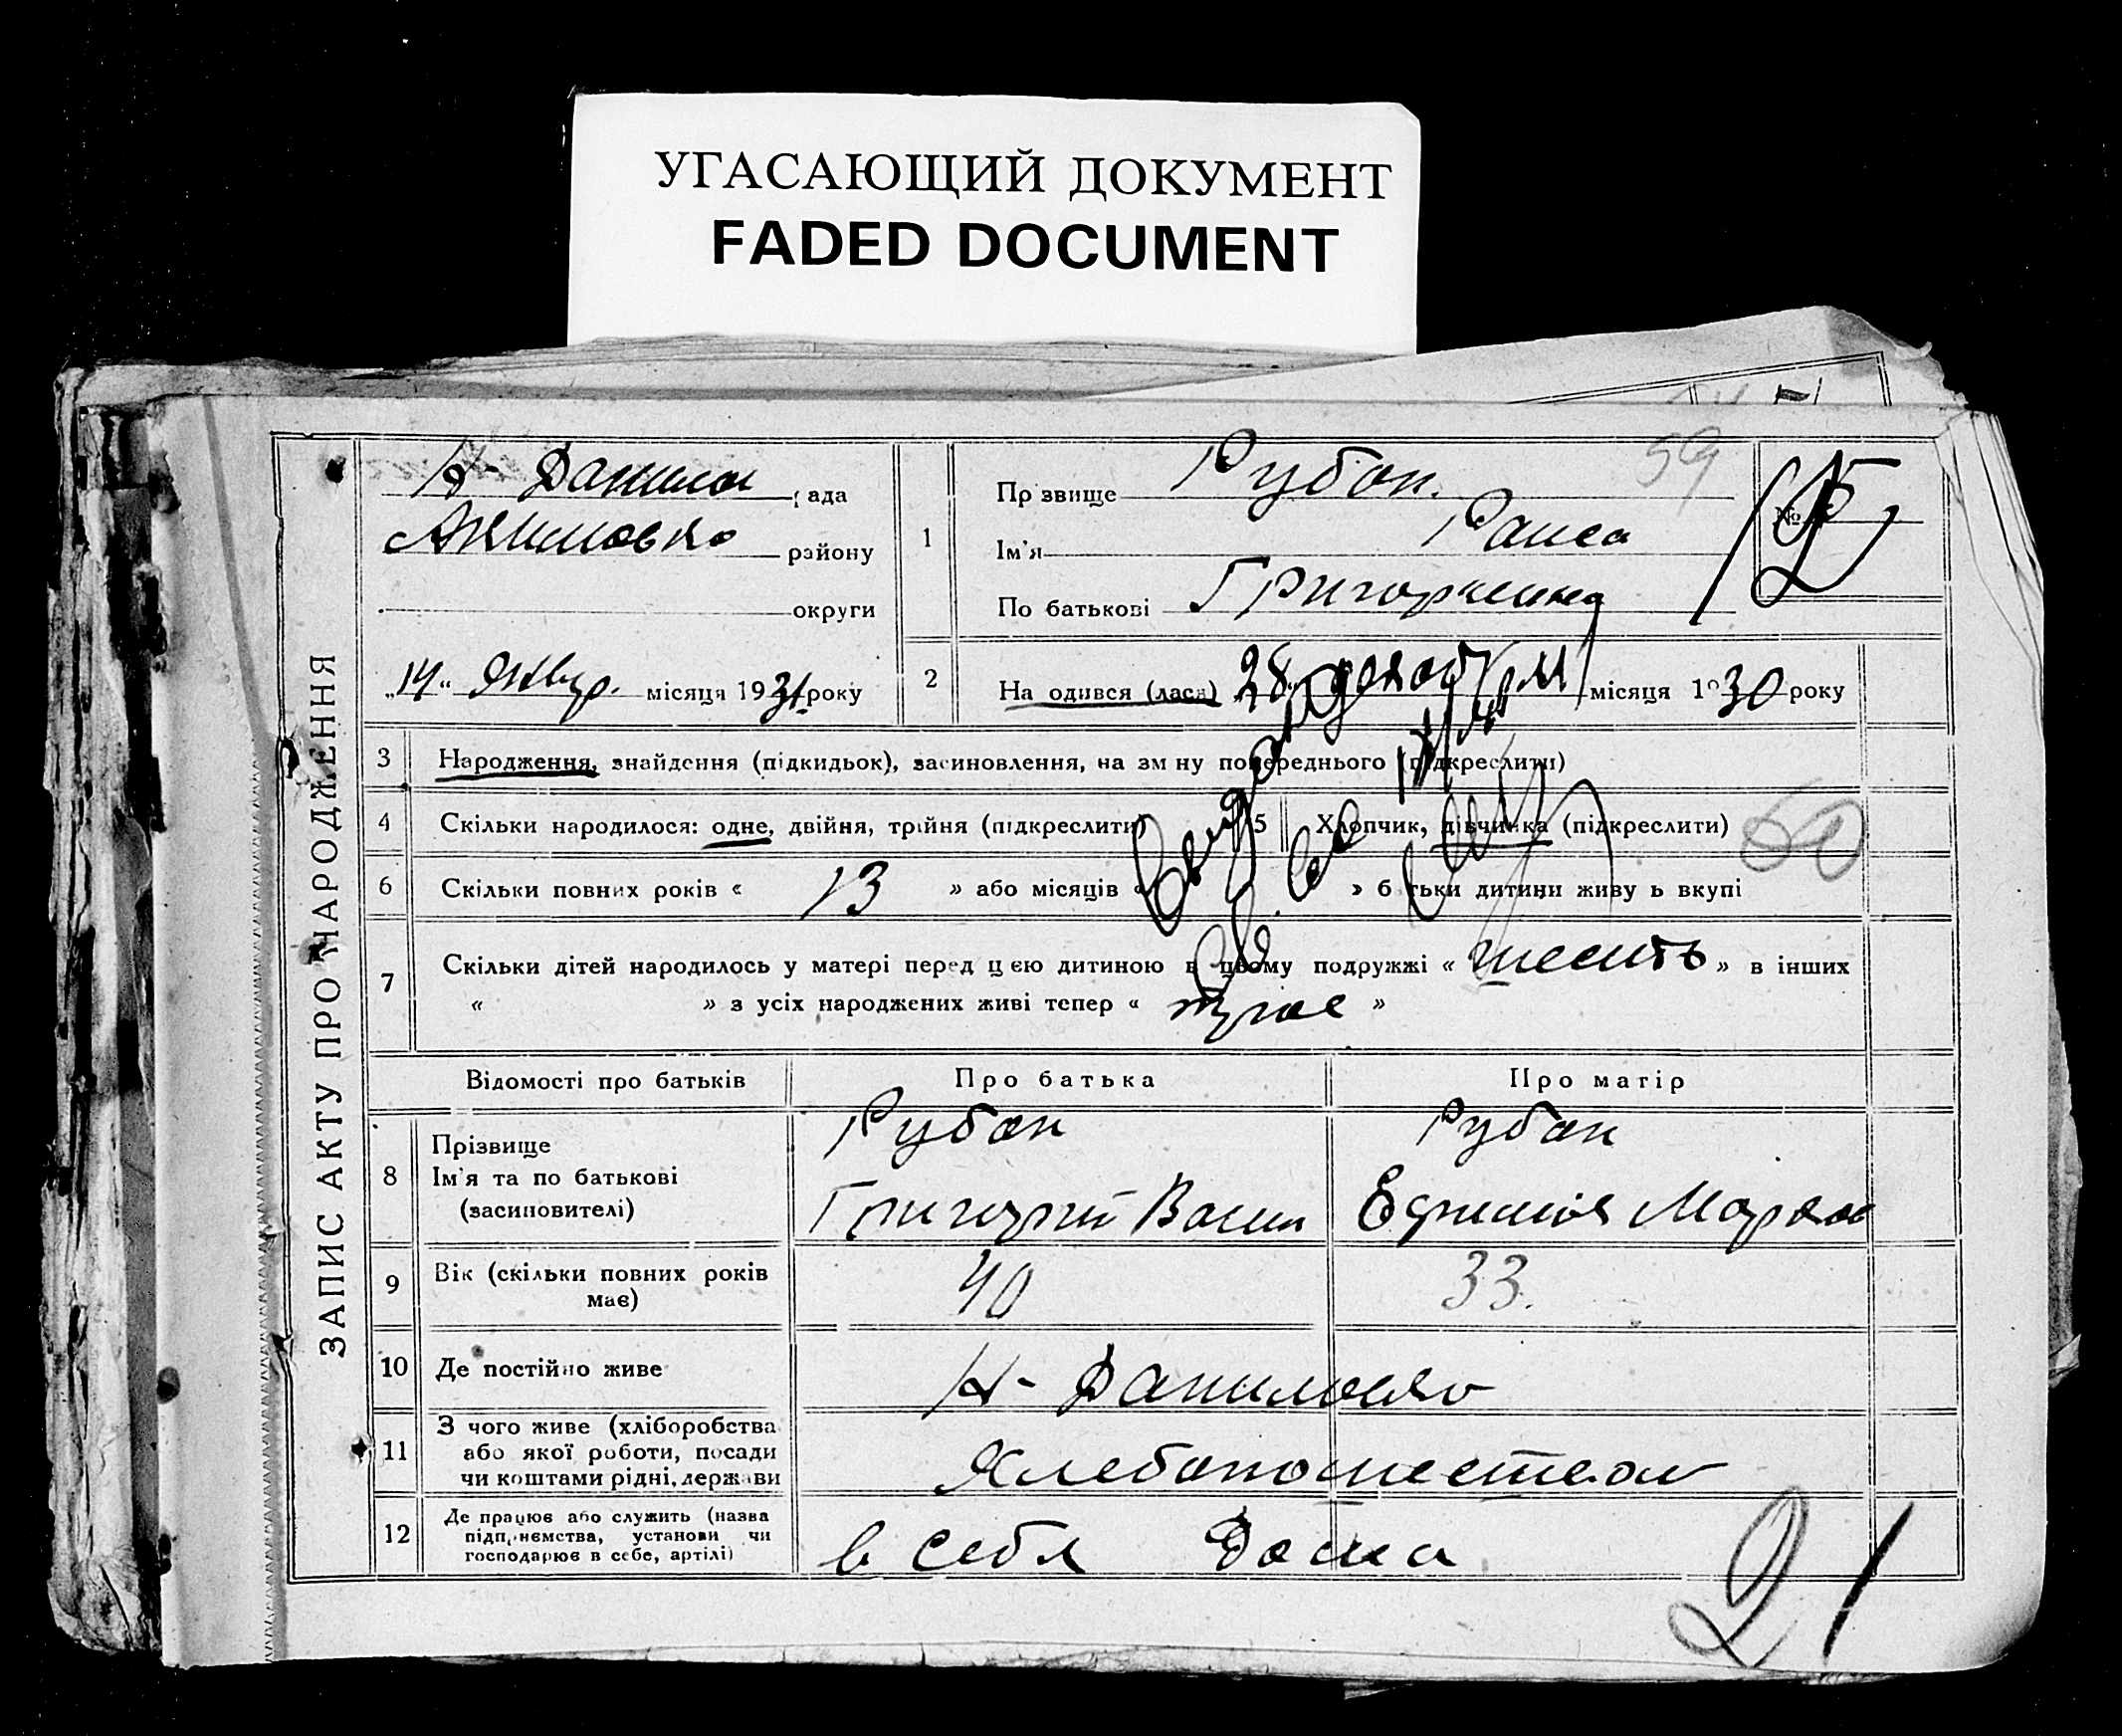 УГАСАЮЩИЙ ДОКУМЕНТ
FADED DOCUMENT
59
ЗАПИС АКТУ ПРО НАРОДЖЕННЯ
Н- Данило рада
Акимовко району
округи
„14“ Январ. місяця 1931 року
1
Прзвище Рубан.
Ім’я Раиса
По батькові Григорьевна
№ 15
2
На одився (лася) 28 декабря місяця 1930 року
3 Народження, знайдення (підкидьок), засиновлення, на зм ну попереднього (підкреслити)
4 Скільки народилося: одне, двійня, трійня (підкреслити)
5 Хлопчик, дівчинка (підкреслити)
60
6 Скільки повних років « 13 » або місяців « » б тьки дитини живу ь вкупі
7 Скільки дітей народилось у матері перед цією дитиною в цьому подружжі « шесть » в інших
« » з усіх народжених живі тепер « трое »
Відомості про батьків Про батька Про матір
8 Прізвище Рубан Рубан
Ім’я та по батькові Григорий Васил Ефимия Марков
(засиновителі)
9 Вік (скільки повних років має) 40 33.
10 Де постійно живе Н- Даниловко
11 З чого живе (хліборобства
або якої роботи, посади
чи коштами рідні, держави Хлебопашеством
12 Де працює або служить (назва
підприємства, установи чи
господарює в себе, артілі) в себя Дома
21